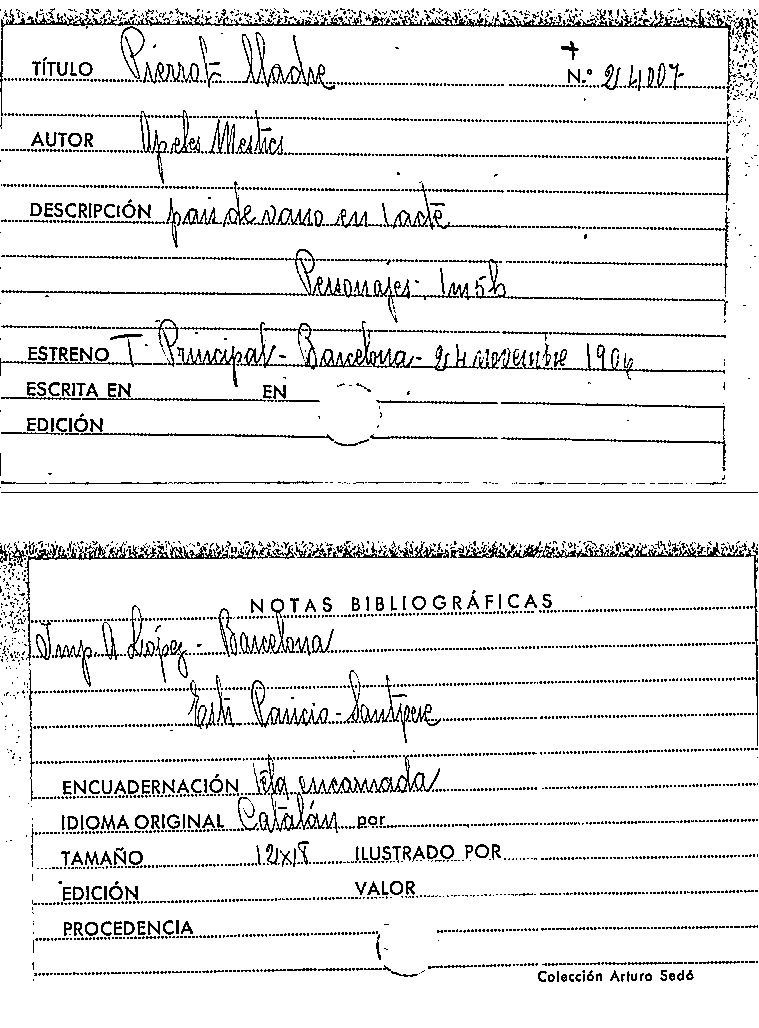 TÍTULO Pierrot lladre
+
N.º 24007
AUTOR Apeles Mestres
DESCRIPCIÓN pais de vano en 1 acte
Personajes: 1m5h
ESTRENO T. Principal - Barcelona - 24 novembre 1906
ESCRITA EN EN
EDICIÓN
NOTAS BIBLIOGRÁFICAS
Imp. A López - Barcelona
Santpere
ENCUADERNACIÓN tela encarnada
IDIOMA ORIGINAL Catalán por
TAMAÑO 12x18 ILUSTRADO POR
EDICIÓN VALOR
PROCEDENCIA
Colección Arturo Sedó